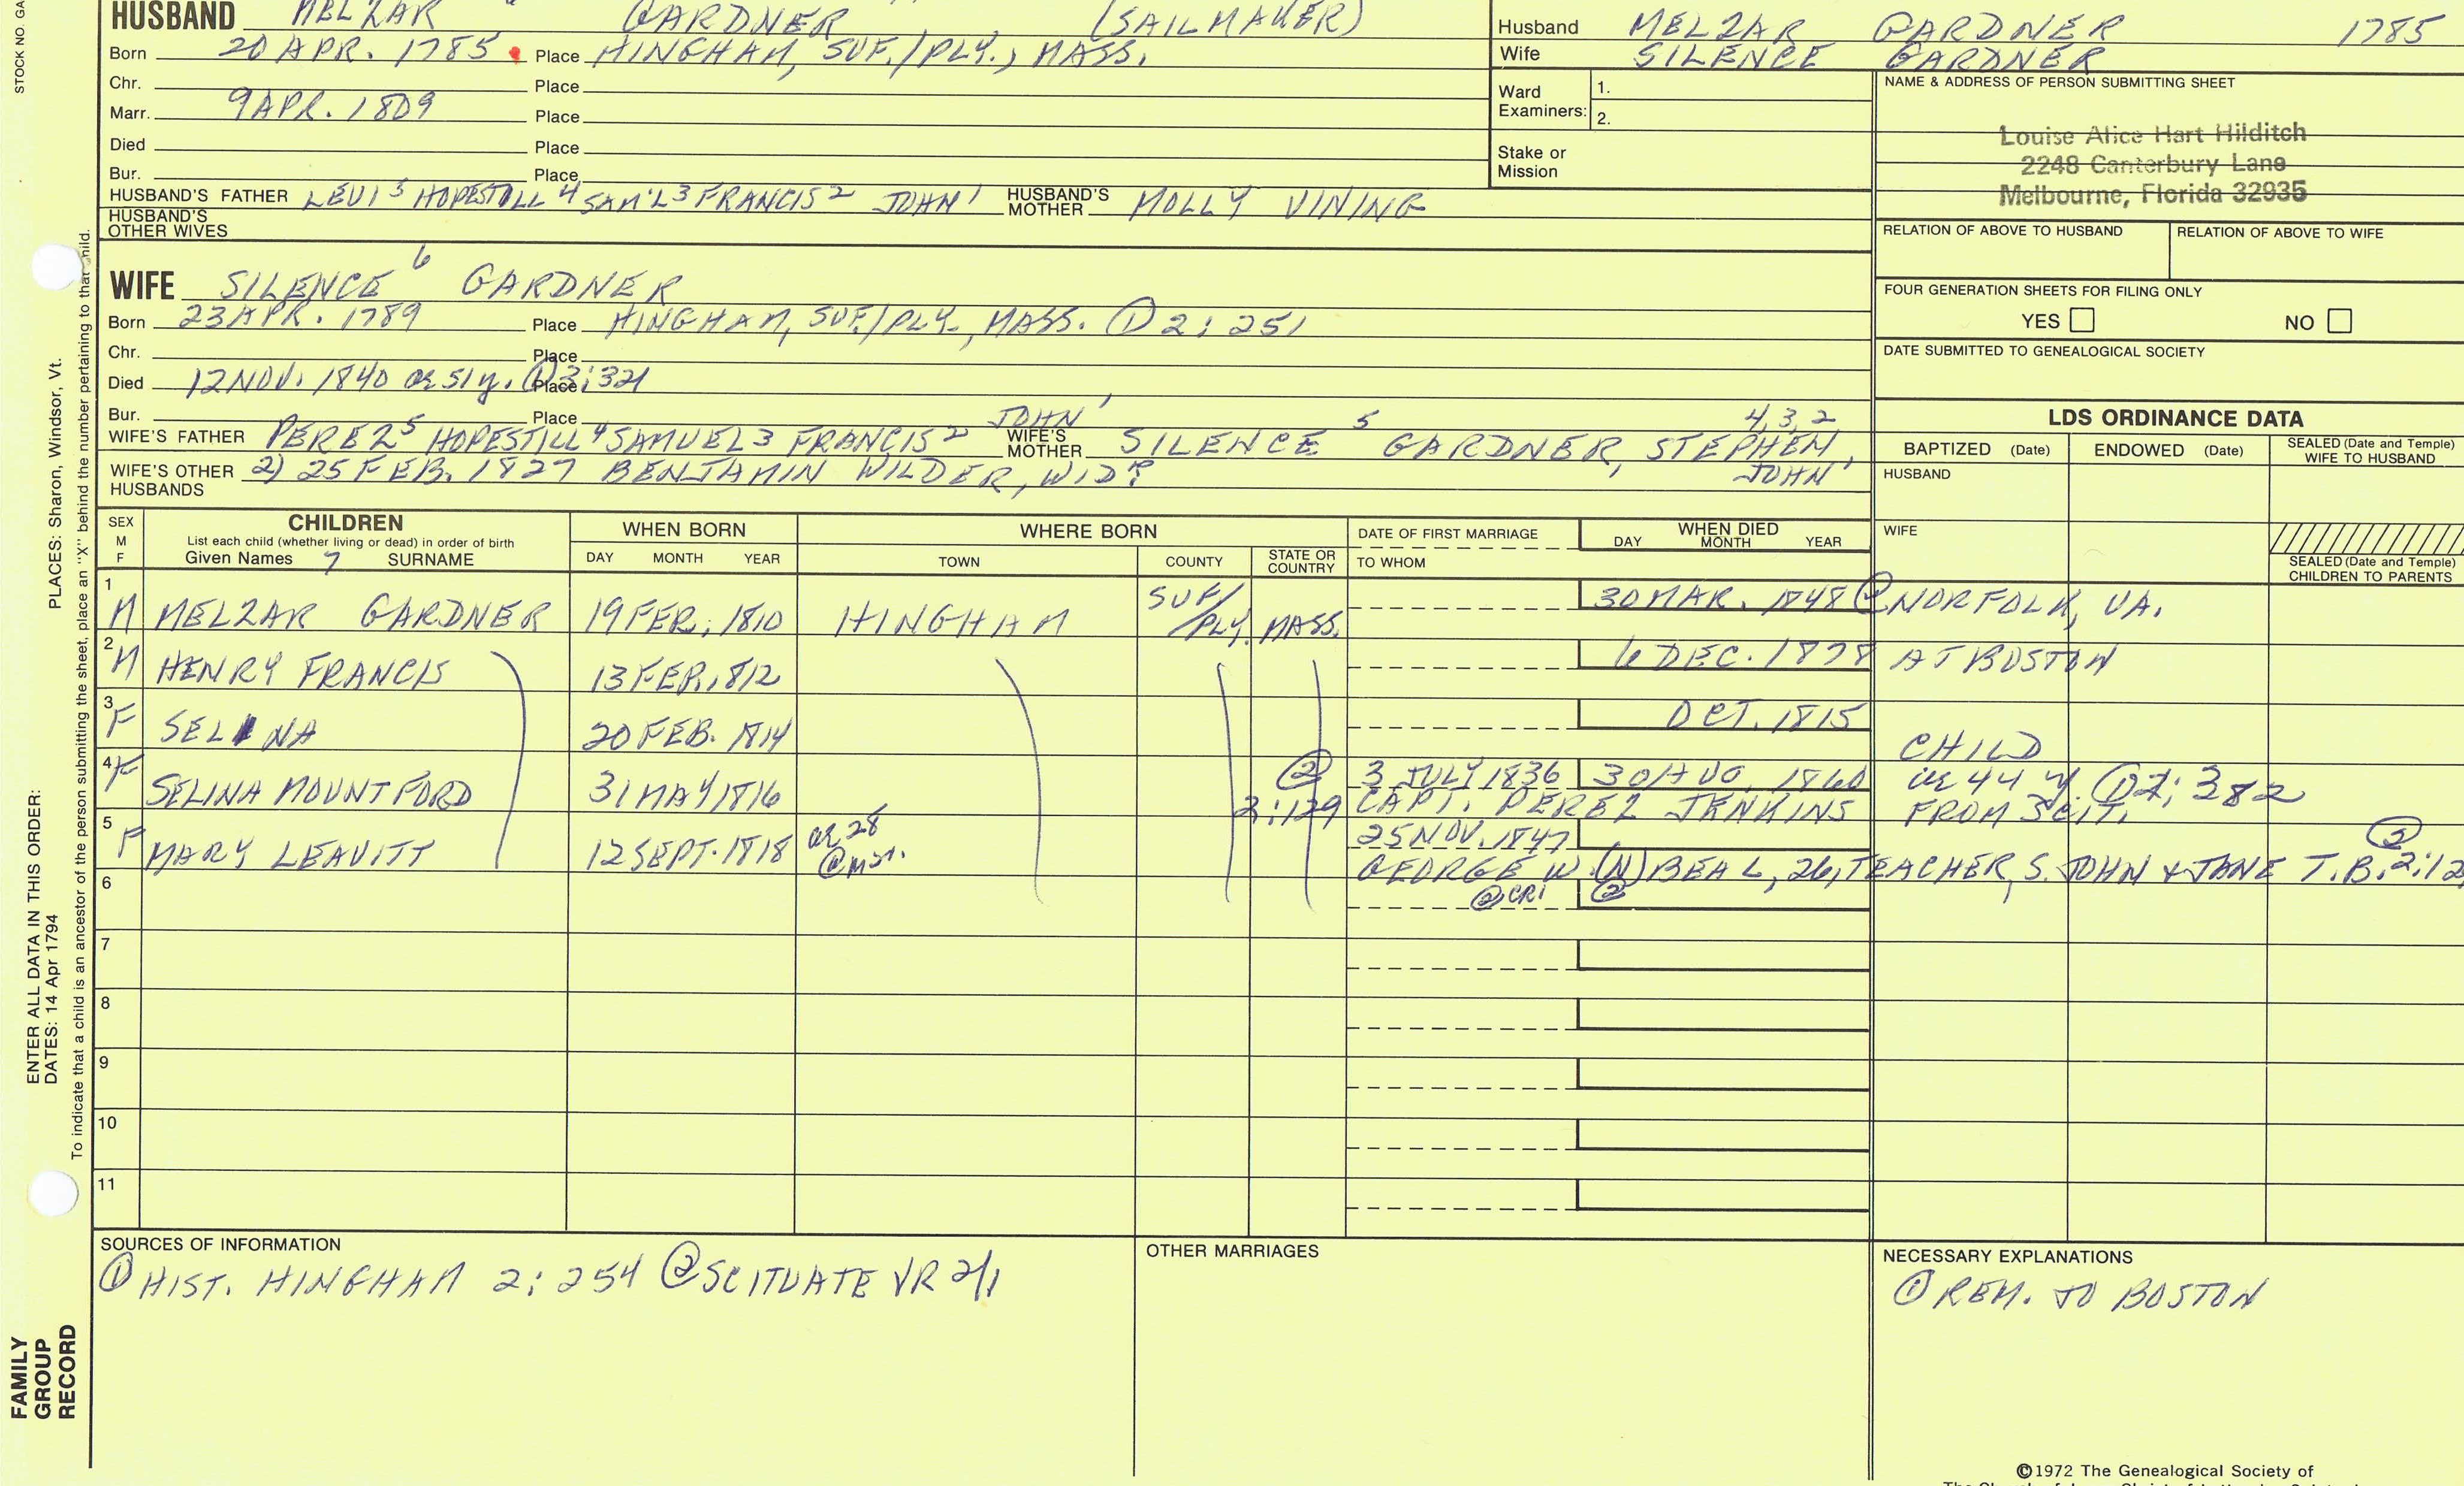 STOCK NO. GA
HUSBAND MELZAR GARDNER (SAILMAKER)
Born 20 APR. 1785 Place HINGHAM, SUF./PLY., MASS.
Chr. Place
Marr. 9 APR. 1809 Place
Died Place
Bur. Place
HUSBAND'S FATHER LEVI 5 HOPESTILL 4 SAM'L 3 FRANCIS 2 JOHN 1 HUSBAND'S MOTHER MOLLY VINING
HUSBAND'S OTHER WIVES
Husband MELZAR GARDNER 1785
Wife SILENCE GARDNER
Ward Examiners: 1.
2.
Stake or Mission
NAME & ADDRESS OF PERSON SUBMITTING SHEET
Louise Alice Hart Hilditch
2248 Canterbury Lane
Melbourne, Florida 32935
RELATION OF ABOVE TO HUSBAND RELATION OF ABOVE TO WIFE
FOUR GENERATION SHEETS FOR FILING ONLY
YES NO
DATE SUBMITTED TO GENEALOGICAL SOCIETY
WIFE SILENCE 6 GARDNER
Born 23 APR. 1789 Place HINGHAM, SUF./PLY., MASS. ① 2:251
Chr. Place
Died 12 NOV. 1840 ae 51 y. Place
Bur. Place
WIFE'S FATHER PEREZ 5 HOPESTILL 4 SAMUEL 3 FRANCIS 2 JOHN 1 WIFE'S MOTHER SILENCE 5 GARDNER, STEPHEN, 4, 3, 2 JOHN 1
WIFE'S OTHER HUSBANDS 2) 25 FEB. 1827 BENJAMIN WILDER, WIDR
LDS ORDINANCE DATA
BAPTIZED (Date) ENDOWED (Date) SEALED (Date and Temple) WIFE TO HUSBAND
HUSBAND
WIFE
SEALED (Date and Temple) CHILDREN TO PARENTS
SEX M F CHILDREN List each child (whether living or dead) in order of birth Given Names 7 SURNAME
WHEN BORN DAY MONTH YEAR
WHERE BORN TOWN COUNTY STATE OR COUNTRY
DATE OF FIRST MARRIAGE TO WHOM
WHEN DIED DAY MONTH YEAR
1 M MELZAR GARDNER 19 FEB. 1810 HINGHAM SUF/PLY. MASS. 30 MAR. 1848 @ NORFOLK, VA.
2 M HENRY FRANCIS 13 FEB. 1812 6 DEC. 1878 AT BOSTON
3 F SELINA 20 FEB. 1814 OCT. 1815 CHILD
4 F SELINA MOUNTFORD 31 MAY 1816 ② 2:129 3 JULY 1836 30 AUG. 1860 ae 44 y. 382
CAPT. PEREZ JENKINS FROM SCIT.
5 F MARY LEAVITT 12 SEPT. 1818 ae 28 @ m 25 NOV. 1847
GEORGE W. (N) BEAL, 26, TEACHER, S. JOHN & JANE T. B. 2:12
6 @ CR1 ②
7
8
9
10
11
SOURCES OF INFORMATION
① HIST. HINGHAM 2:254 ② SCITUATE VR 2/1
OTHER MARRIAGES
NECESSARY EXPLANATIONS
① REM. TO BOSTON
©1972 The Genealogical Society of
ENTER ALL DATA IN THIS ORDER:
DATES: 14 Apr 1794
PLACES: Sharon, Windsor, Vt.
To indicate that a child is an ancestor of the person submitting the sheet, place an "X" behind the number pertaining to that child.
FAMILY
GROUP
RECORD